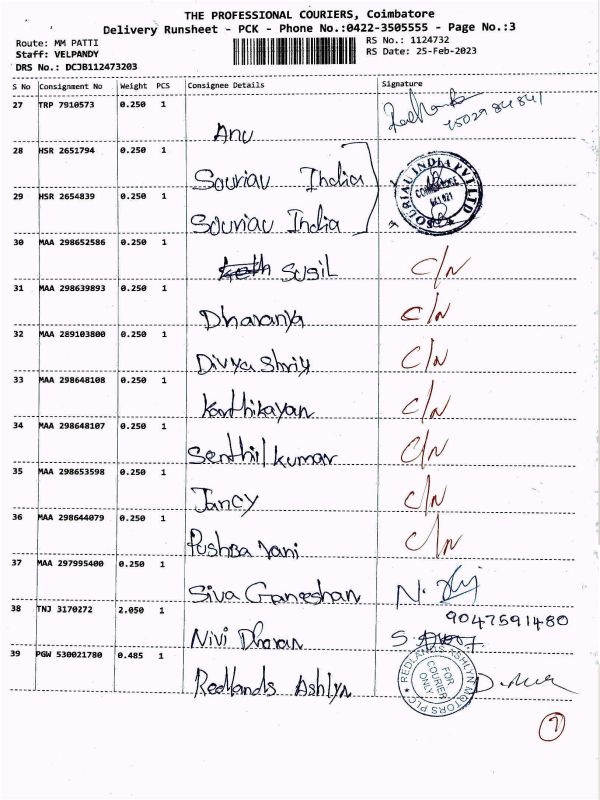 THE PROFESSIONAL COURIERS, Coimbatore
Delivery Runsheet - PCK - Phone No.:0422-3505555 - Page No.:3
Route: MM PATTI
RS No.: 1124732
Staff: VELPANDY
RS Date: 25-Feb-2023
DRS No.: DCJB112473203
S No Consignment No Weight PCS Consignee Details Signature
27 TRP 7910573 0.250 1
Anu
28 HSR 2651794 0.250 1
Souriau India
29 HSR 2654839 0.250 1
Souriau India
SOURIAU INDIA PVT LTD
30 MAA 298652586 0.250 1
Susil C/N
31 MAA 298639893 0.250 1
Dharanya C/N
32 MAA 289103800 0.250 1
Divya Shriy C/N
33 MAA 298648108 0.250 1
Karthikayan C/N
34 MAA 298648107 0.250 1
Senthil kumar C/N
35 MAA 298653598 0.250 1
Jancy C/N
36 MAA 298644079 0.250 1
Pushba rani C/N
37 MAA 297995400 0.250 1
Siva Ganeshan
38 TNJ 3170272 2.050 1
9047591480
Nivi Dharan
39 PGW 530021780 0.485 1
Redlands Ashlyn
REDLANDS ASHLYN MOTORS PLC
FOR
COURIER
ONLY